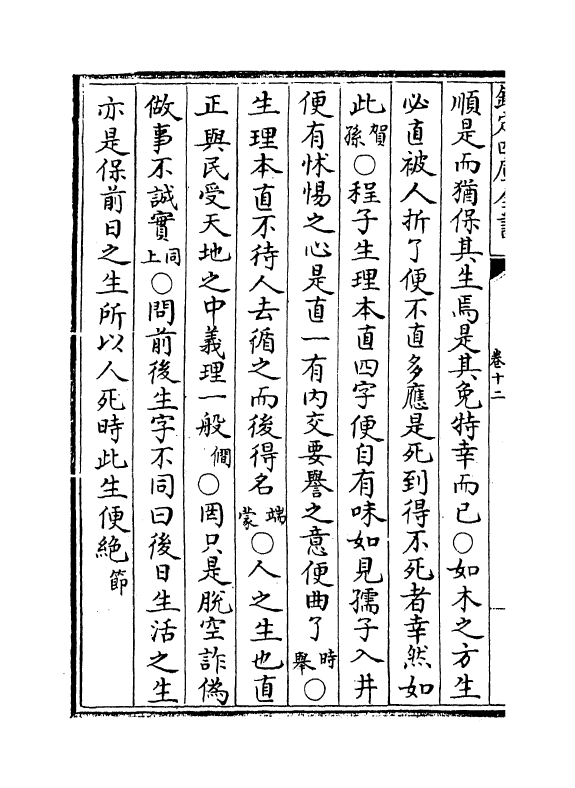 欽定四庫全書
卷十二
順是而猶保其生焉是其免特幸而已○如木之方生
必直被人折了便不直多應是死到得不死者幸然如
此賀孫○程子生理本直四字便自有味如見孺子入井
便有怵惕之心是直一有内交要譽之意便曲了時舉○
生理本直不待人去循之而後得名端蒙○人之生也直
正與民受天地之中義理一般僩○罔只是脱空詐偽
做事不誠實同上○問前後生字不同曰後日生活之生
亦是保前日之生所以人死時此生便絶節